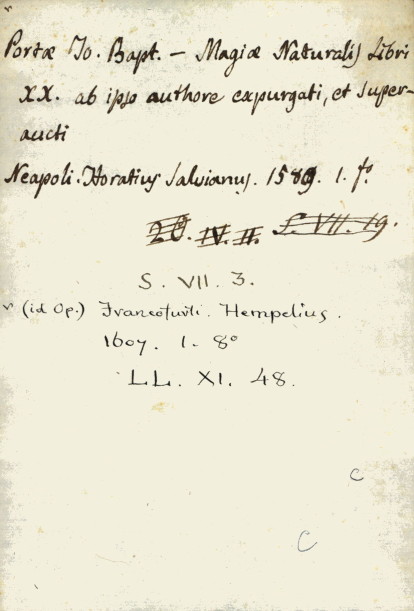 Portæ Jo. Bapt. — Magiæ Naturalis Libri
XX. ab ipso authore expurgati, et super-
aucti
Neapoli. Horatius Salvianus. 1589. 1. fº.
20. IV. II. S. VII. 19.
S. VII. 3.
v (id Op.) Francofurti. Hempelius.
1607. 1. 8º
LL. XI. 48.
C
C